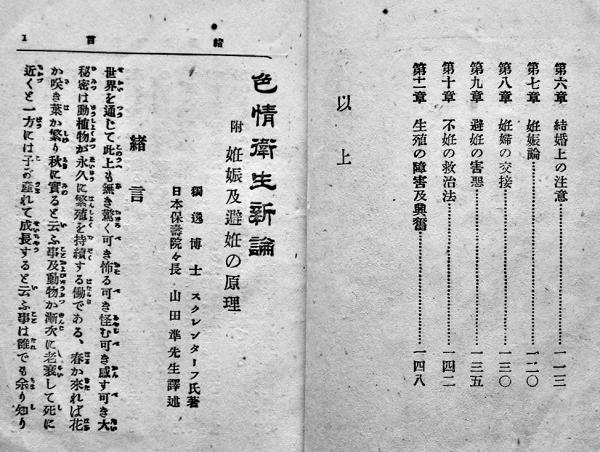 第六章 結婚上の注意………………一一三
第七章 妊娠論………………一二〇
第八章 妊婦の交接………………一三〇
第九章 避妊の害惡………………一三五
第十章 不妊の救治法………………一四二
第十一章 生殖の障害及興奮………………一四八
以上
緒言
1
色情衛生新論
附 妊娠及避妊の原理
獨逸博士 スクレンターフ氏著
日本保壽院々長 山田準先生譯述
緒言
世界を通じて此上も無き驚く可き怖る可き怪む可き感す可き大
秘密は動植物が永久に繁殖を持續する働である、春か來れば花
か咲き葉か繁り秋に實ると云ふ事及動物か漸次に老衰して死に
近くと一方には子の產れて成長すると云ふ事は誰でも余り知り